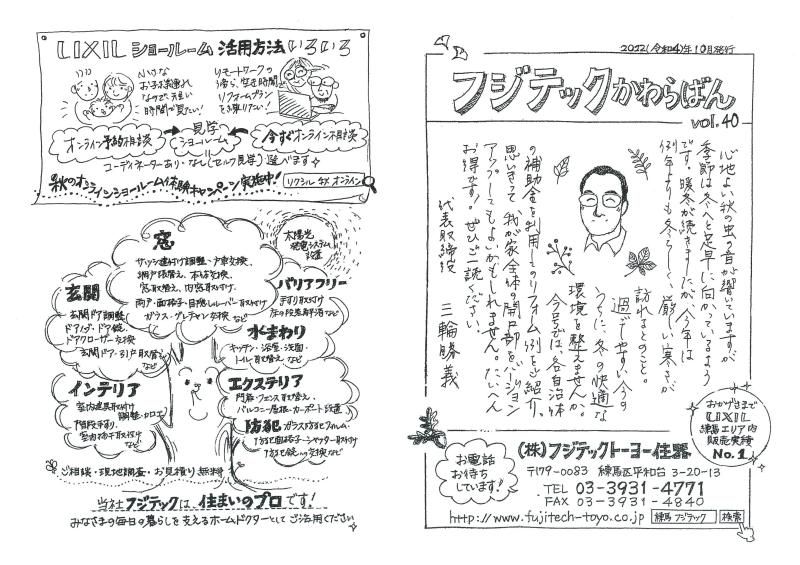 LIXIL ショールーム 活用方法 いろいろ
小さな
お子さま連れ
なので、短い
時間が良い!
リモートワークの
合間、空き時間
リフォームプラン
を練りたい!
オンライン予約相談
見学
ショールーム
今すぐオンライン相談
コーディネーターあり・なし(セルフ見学)選べます
秋のオンラインショールーム体験キャンペーン実施中!
リクシル 秋 オンライン
太陽光
発電システム
設置
窓
サッシ建付け調整・戸車交換、
網戸張替え、本体交換、
窓取替え、内窓取付け、
雨戸・面格子・目隠しルーバー取付け
ガラス・クレセント交換 など
玄関
玄関ドア調整、
ドアノブ・ドア錠、
ドアクローザー交換
玄関ドア・引戸取替え
など
バリアフリー
手すり取付け
床の段差解消 など
水まわり
キッチン・浴室・洗面・
トイレ取替え など
インテリア
室内建具取付け
調整・クロス
階段手すり、
室内格子取付け
など
エクステリア
門扉・フェンス取替え、
バルコニー屋根・カーポート設置
防犯 ガラス防犯フィルム・
防犯面格子・シャッター取付け
防犯錠への交換 など
ご相談・現地調査・お見積り無料
当社フジテックは、住まいのプロです!
みなさまの毎日の暮らしを支えるホームドクターとしてご活用ください
2022(令和4)年10月発行
フジテックかわらばん
vol. 40
心地よい秋の虫の音が響いていますが
季節は冬へと足早に向かっているよう
です。暖冬が続きましたが、今年は
例年よりも冬らしく、厳しい寒さが
訪れるとのこと。
過ごしやすい今の
うちに、冬の快適な
環境を整えませんか。
今号では、各自治体
の補助金を利用してのリフォーム例をご紹介。
思いきって、我が家全体の開口部をバージョン
アップしてもよいかもしれません。たいへん
お得です!ぜひご一読ください。
代表取締役 三輪勝義
おかげさまで
LIXIL
練馬エリア内
販売実績
No.1
お電話
お待ち
しています!
(株)フジテックトーヨー住器
〒179-0083 練馬区平和台 3-20-13
TEL 03-3931-4771
FAX 03-3931-4840
http://www.fujitech-toyo.co.jp
練馬 フジテック 検索